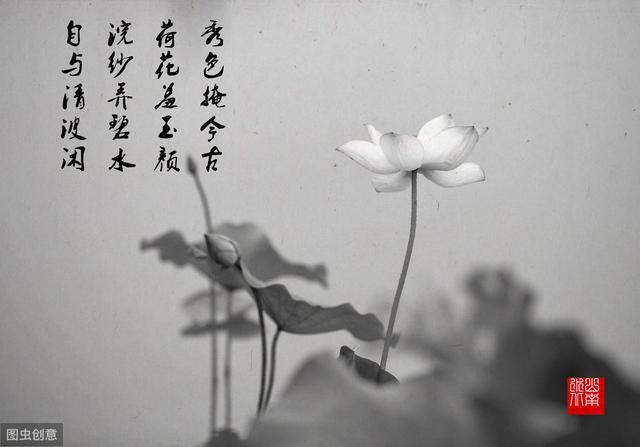 秀色掩今古
荷花羞玉颜
浣纱弄碧水
自与清波闲
图虫创意